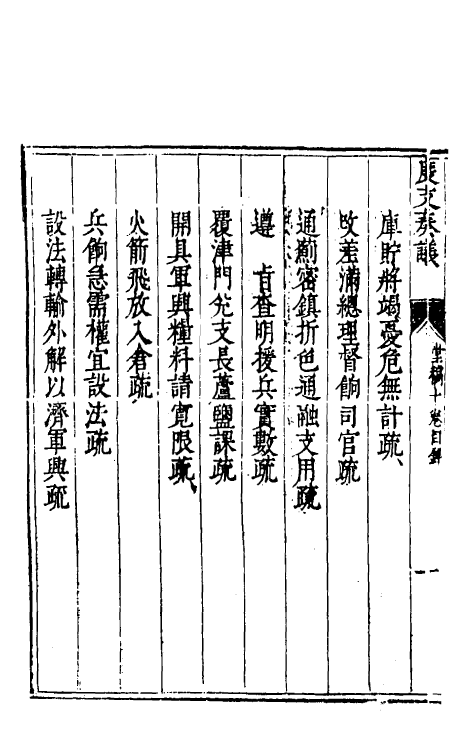 度支奏議
堂稿十卷目錄
一
庫貯將竭憂危無計疏
改差滿總理督餉司官疏
通薊密鎮折色通融支用疏
遵 旨查明援兵實數疏
覆津門兌支長蘆鹽課疏
開具軍興糧料請寬限疏
火箭飛放入倉疏
兵餉急需權宜設法疏
設法轉輸外解以濟軍興疏